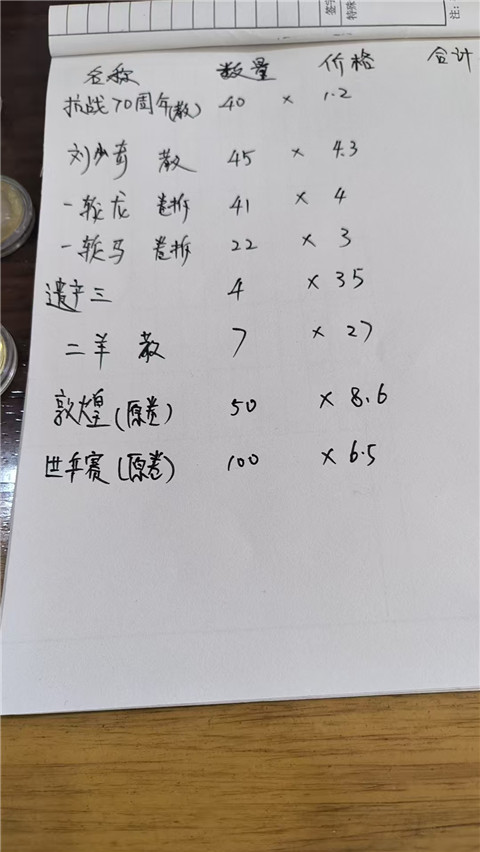 签字
特殊
注:
名称 数量 价格 合计
抗战70周年(散) 40 × 1.2
刘少奇 散 45 × 4.3
一轮龙 卷拆 41 × 4
一轮马 卷拆 22 × 3
遗产三 4 × 35
二羊 散 7 × 27
敦煌(原卷) 50 × 8.6
世乒赛(原卷) 100 × 6.5